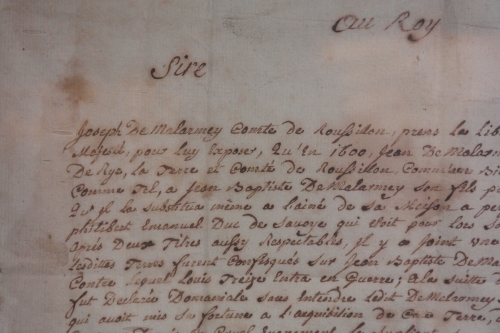 Au Roy
Sire
Joseph De Malarmey Comte de Roussillon, prens la Lib
Majesté, pour Luy Exposer, Qu'En 1600, Jean De Malarm
De Rye, la Terre et Comté de Roussillon, Comme un Bi
Comme Tel, a Jean Baptiste De Malarmey Son fils p
Et il la substitua même a l'ainé de Sa Maison a pe
philibert Emanuel Duc de Savoye qui Etoit pour lors So
Après Deux Titres aussy Respectables, il y a joint une
lesdittes Terres furent Confisquées Sur Jean Baptiste De Ma
Contre lequel Louis Treize Entra en Guerre; a la Suitte
fut Declarée Domaniale sans Entendre ledit De Malromey
qui avoit mis Sa fortune a L'acquisition de Terre,